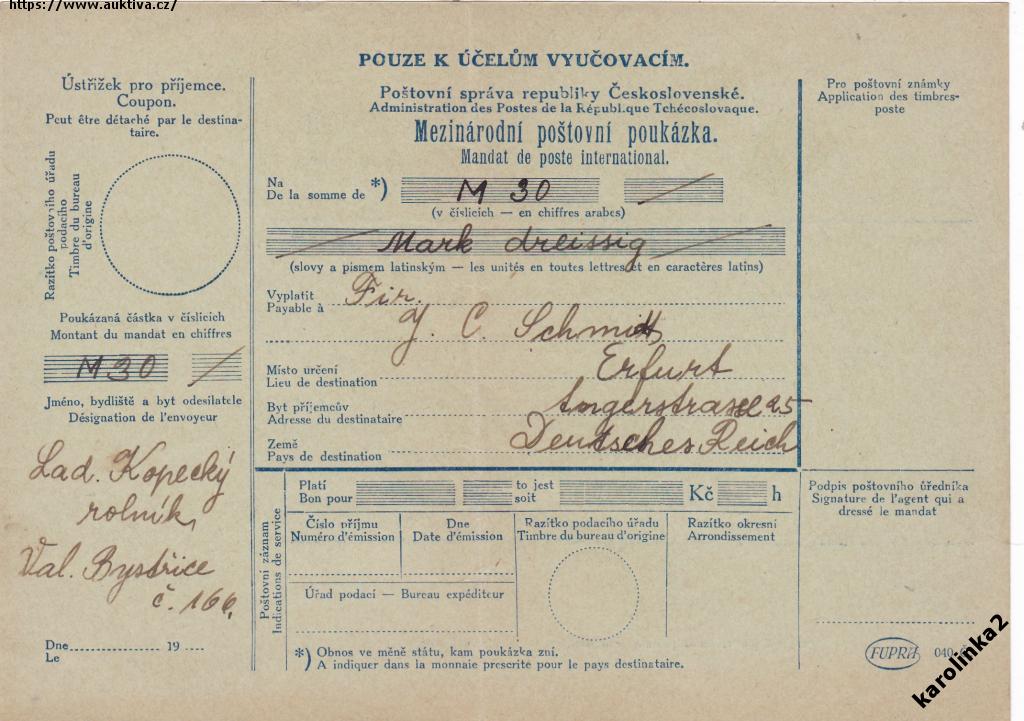 https://www.auktiva.cz/
POUZE K ÚČELŮM VYUČOVACÍM.
Ústřižek pro příjemce.
Coupon.
Peut être détaché par le destina-
taire.
Razítko poštovního úřadu
podacího
Timbre du bureau
d'origine
Poukázaná částka v číslicích
Montant du mandat en chiffres
M 30
Jméno, bydliště a byt odesilatele
Désignation de l'envoyeur
Lad. Kopecký
rolník,
Val. Bystřice
č. 166.
Dne 19
Le
Poštovní správa republiky Československé.
Administration des Postes de la République Tchécoslovaque.
Mezinárodní poštovní poukázka.
Mandat de poste international.
Na
De la somme de *) M 30
(v číslicích — en chiffres arabes)
Mark dreissig
(slovy a pismem latinským — les unités en toutes lettres et en caractères latins)
Vyplatit
Payable à Fir.
J. C. Schmidt,
Místo určení
Lieu de destination Erfurt
Byt příjemcův
Adresse du destinataire Angerstrasse 25
Země
Pays de destination Deutsches Reich
Pro poštovní známky
Application des timbres-
poste
Poštovní záznam
Indications de service
Platí
Bon pour
to jest
soit
Kč h
Číslo příjmu
Numéro d'émission
Dne
Date d'émission
Razítko podacího úřadu
Timbre du bureau d'origine
Razítko okresní
Arrondissement
Úřad podací — Bureau expéditeur
*) Obnos ve měně státu, kam poukázka zní.
A indiquer dans la monnaie prescrite pour le pays destinataire.
Podpis poštovního úředníka
Signature de l'agent qui a
dressé le mandat
FUPRA 040
karolinka2